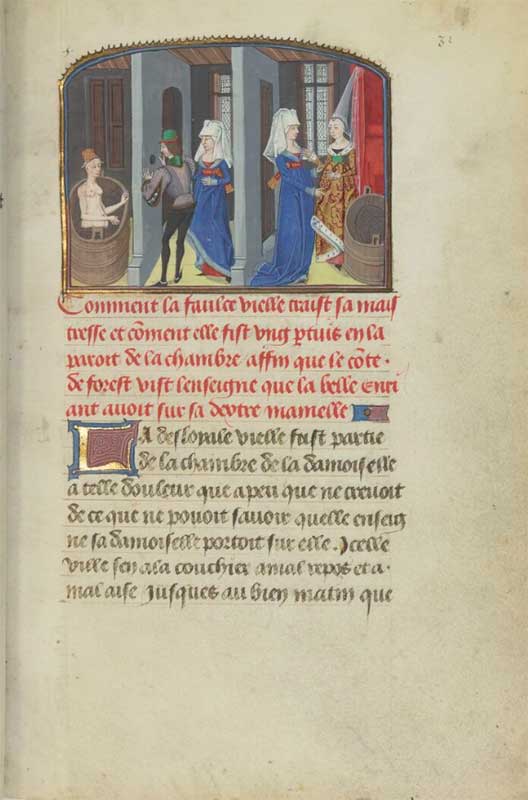 31
Comment la faulce vielle traist sa mais
tresse et cōment elle fist vng ptuis en la
paroit de la chambre affin que le cōte
de forest vist lenseigne que la belle Euri
ant auoit sur sa dextre mamelle
LA desloyale vielle feist partie
de la chambre de la damoiselle
a telle douleur que a peu que ne creuoit
de ce que ne pouoit sauoir quelle enseig
ne sa damoiselle portoit sur elle. Jcelle
vielle sen ala couchier a mal repos et a
mal aise Jusques au bien matin que